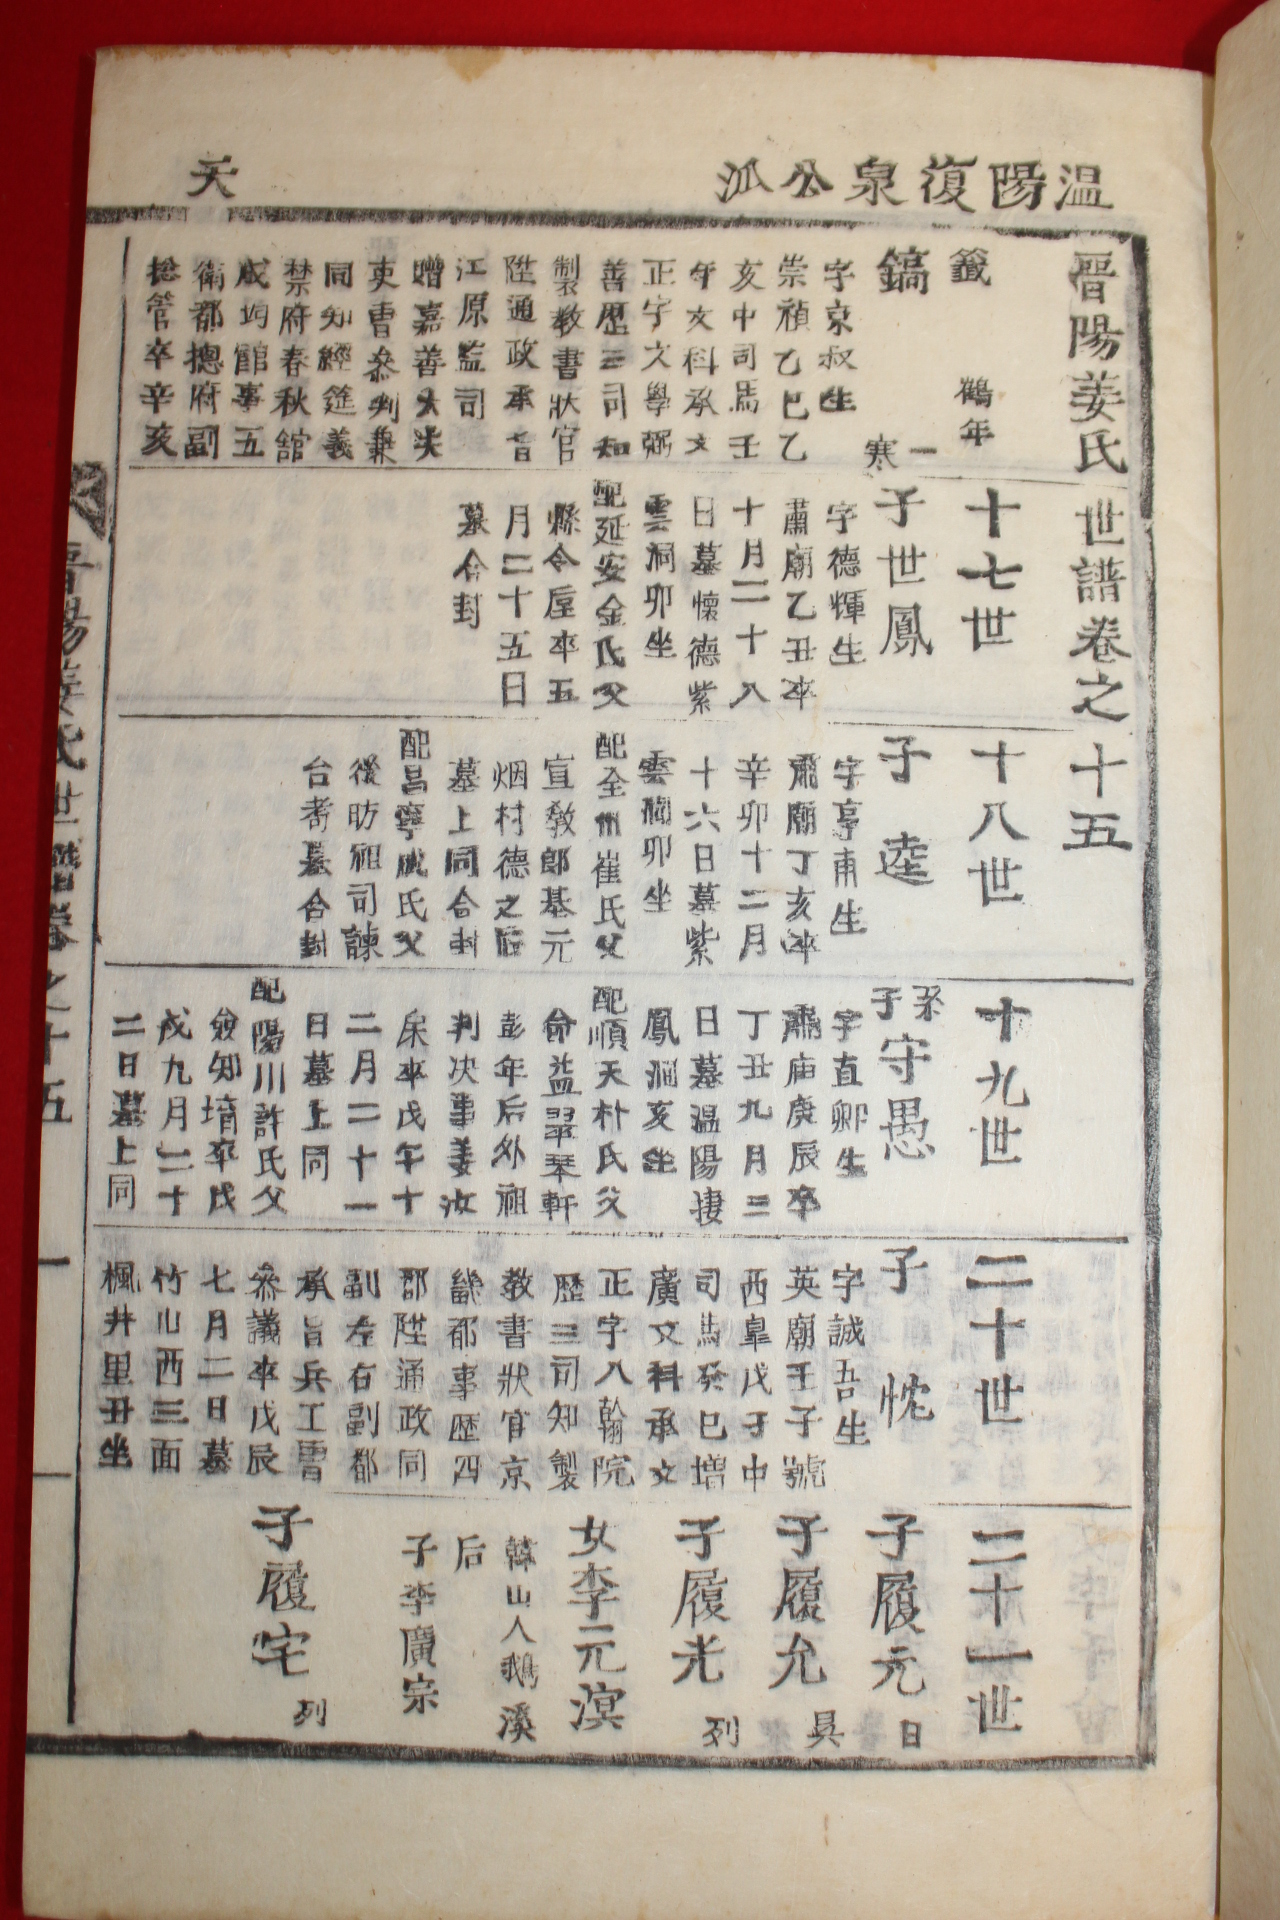 溫陽復泉公派
天
晋陽姜氏世譜卷之十五
籤 鶴年
鎬 一寒
字京叔生
崇禎乙巳乙
亥中司馬壬
午文科承文
正字文學弼
善歷三司知
製敎書狀官
陞通政承旨
江原監司
贈嘉善大夫
吏曹叅判兼
同知經筵義
禁府春秋舘
成均館事五
衛都摠府副
摠管卒辛亥
十七世
子世鳳
字德輝生
肅廟乙丑卒
十月二十八
日墓懷德紫
雲洞卯坐
配延安金氏父
縣令厚卒五
月二十五日
墓合封
十八世
子逵
字亨甫生
肅廟丁亥卒
辛卯十二月
十六日墓紫
雲洞卯坐
配全州崔氏父
宣敎郎基元
烟村德之后
墓上同合封
配昌寧成氏父
後昉祖司諫
台耉墓合封
十九世
系子守愚
字直卿生
肅庙庚辰卒
丁丑九月三
日墓溫陽捿
鳳洞亥坐
配順天朴氏父
命益翠琴軒
彭年后外祖
判决事姜汝
㦿卒戊午十
二月二十一
日墓上同
配陽川許氏父
僉知堉卒戊
戌九月二十
二日墓上同
二十世
子忱
字誠吾生
英廟壬子號
西臯戊子中
司馬癸巳增
廣文科承文
正字入翰院
歷三司知製
敎書狀官京
畿都事歷四
郡陞通政同
副左右副都
承旨兵工曹
叅議卒戊辰
七月二日墓
竹山西三面
楓井里丑坐
二十一世
子履元 日
子履允 具
子履光 列
女李元溟
韓山人鵝溪
后
子李廣宗
子履宅 列
晋陽姜氏世譜卷之十五 一